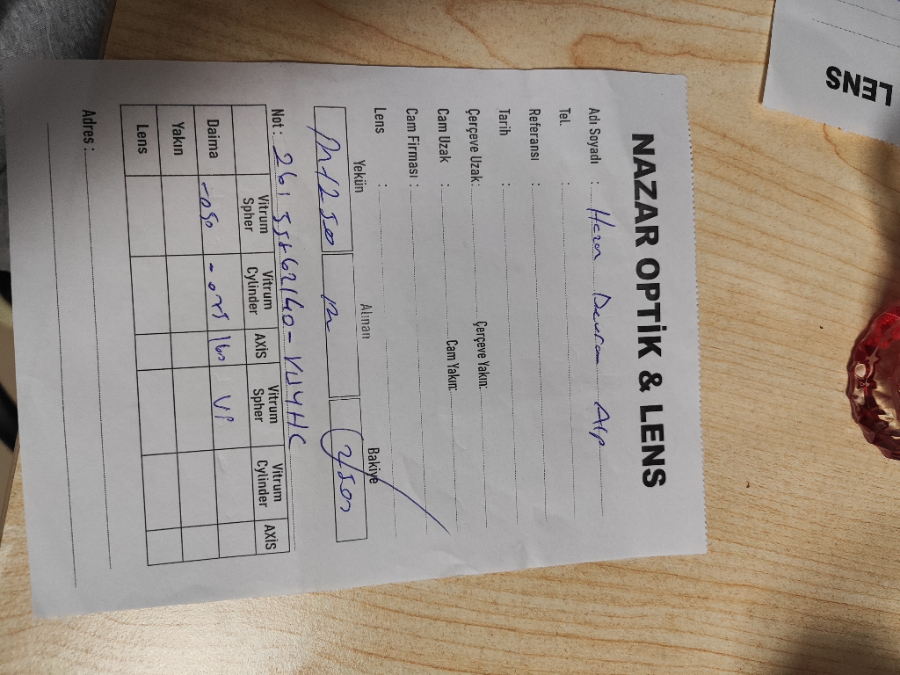 NAZAR OPTİK & LENS
Adı Soyadı : Hazan Devran Alp
Tel. :
Referansı :
Tarih :
Çerçeve Uzak: Çerçeve Yakın:
Cam Uzak : Cam Yakın:
Cam Firması :
Lens :
Yekün Alınan Bakiye
Not :
Vitrum Spher Vitrum Cylinder AXİS Vitrum Spher Vitrum Cylinder AXİS
Daima -050 -075 160
Yakın
Lens
Adres :
LENS